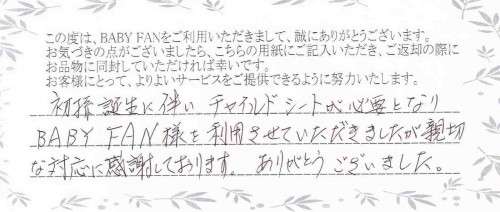 この度は、BABY FANをご利用いただきまして、誠にありがとうございます。
お気づきの点がございましたら、こちらの用紙にご記入いただき、ご返却の際に
お品物に同封していただければ幸いです。
お客様にとって、よりよいサービスをご提供できるように努力いたします。
初孫誕生に伴いチャイルドシートが必要となり
BABY FAN様を利用させていただきましたが親切
な対応に感謝しております。ありがとうございました。